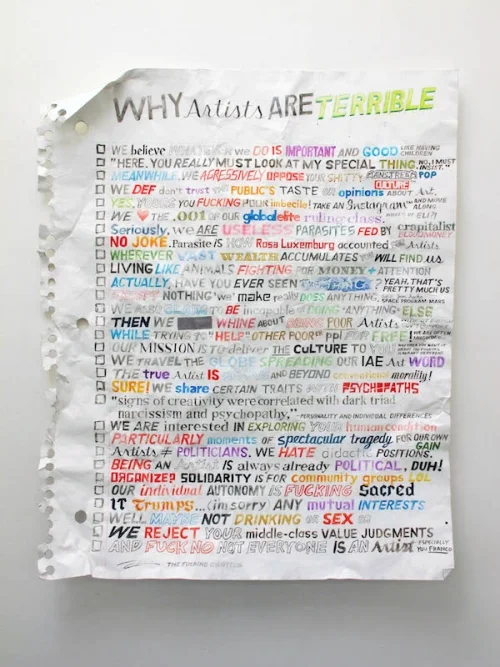 WHY Artists ARE TERRIBLE
WE believe WHATEVER we DO IS IMPORTANT AND GOOD LIKE HAVING CHILDREN
"HERE. YOU REALLY MUST LOOK AT MY SPECIAL THING. NO, I MUST INSIST."
MEANWHILE, WE AGRESSIVELY OPPOSE YOUR SHITTY MAINSTREAM POP CULTURE
WE DEF don't trust THE PUBLIC'S TASTE OR opinions ABOUT Art.
YES, YOU'RE YOU FUCKING POOR imbecile! TAKE AN Instagram AND MOVE ALONG
WE THE .001 OF OUR global elite ruling class.
Seriously, we ARE USELESS PARASITES FED BY crapitalist BLOODMONEY
NO JOKE. Parasite IS HOW Rosa Luxemburg accounted Artists
WHEREVER VAST WEALTH ACCUMULATES WILL FIND us
LIVING LIKE ANIMALS FIGHTING FOR MONEY + ATTENTION
ACTUALLY, HAVE YOU EVER SEEN ? YEAH. THAT'S PRETTY MUCH US
NOTHING "we" make really DOES ANYTHING. SPACE PROGRAM: MARS
WE TO BE incapable OF DOING ANYTHING ELSE
THEN WE WHINE ABOUT BEING POOR Artists
WHILE TRYING TO "HELP" "OTHER POOR" ppl FOR FREE!
OUR MISSION IS TO deliver THE CuLTURE TO YOU
WE TRAVEL THE GLOBE SPREADING OUR IAE Art WORD
THE true Artist IS AND BEYOND conventional morality!
SURE! WE share CERTAIN TRAITS WITH PSYCHOPATHS
"signs of creativity were correlated with dark triad
narcissism and psychopathy," -PERSONALITY AND INDIVIDUAL DIFFERENCES
WE ARE interested IN EXPLORING YOUR human condition
PARTICULARLY moments OF spectacular tragedy, FOR OUR OWN GAIN
Artists ≠ POLITICIANS. WE HATE didactic POSITIONS.
BEING AN Artist IS always already POLITICAL, DUH!
ORGANIZE? SOLIDARITY IS FOR community groups LOL
OUR individual AUTONOMY IS FUCKING Sacred
IT Trumps...(im sorry) ANY mutual INTERESTS
WELL MAYBE NOT DRINKING OR SEX
WE REJECT YOUR middle-class VALUE JUDGMENTS
AND FUCK NO NOT EVERYONE IS AN Artist ESPECIALLY YOU FRANCO